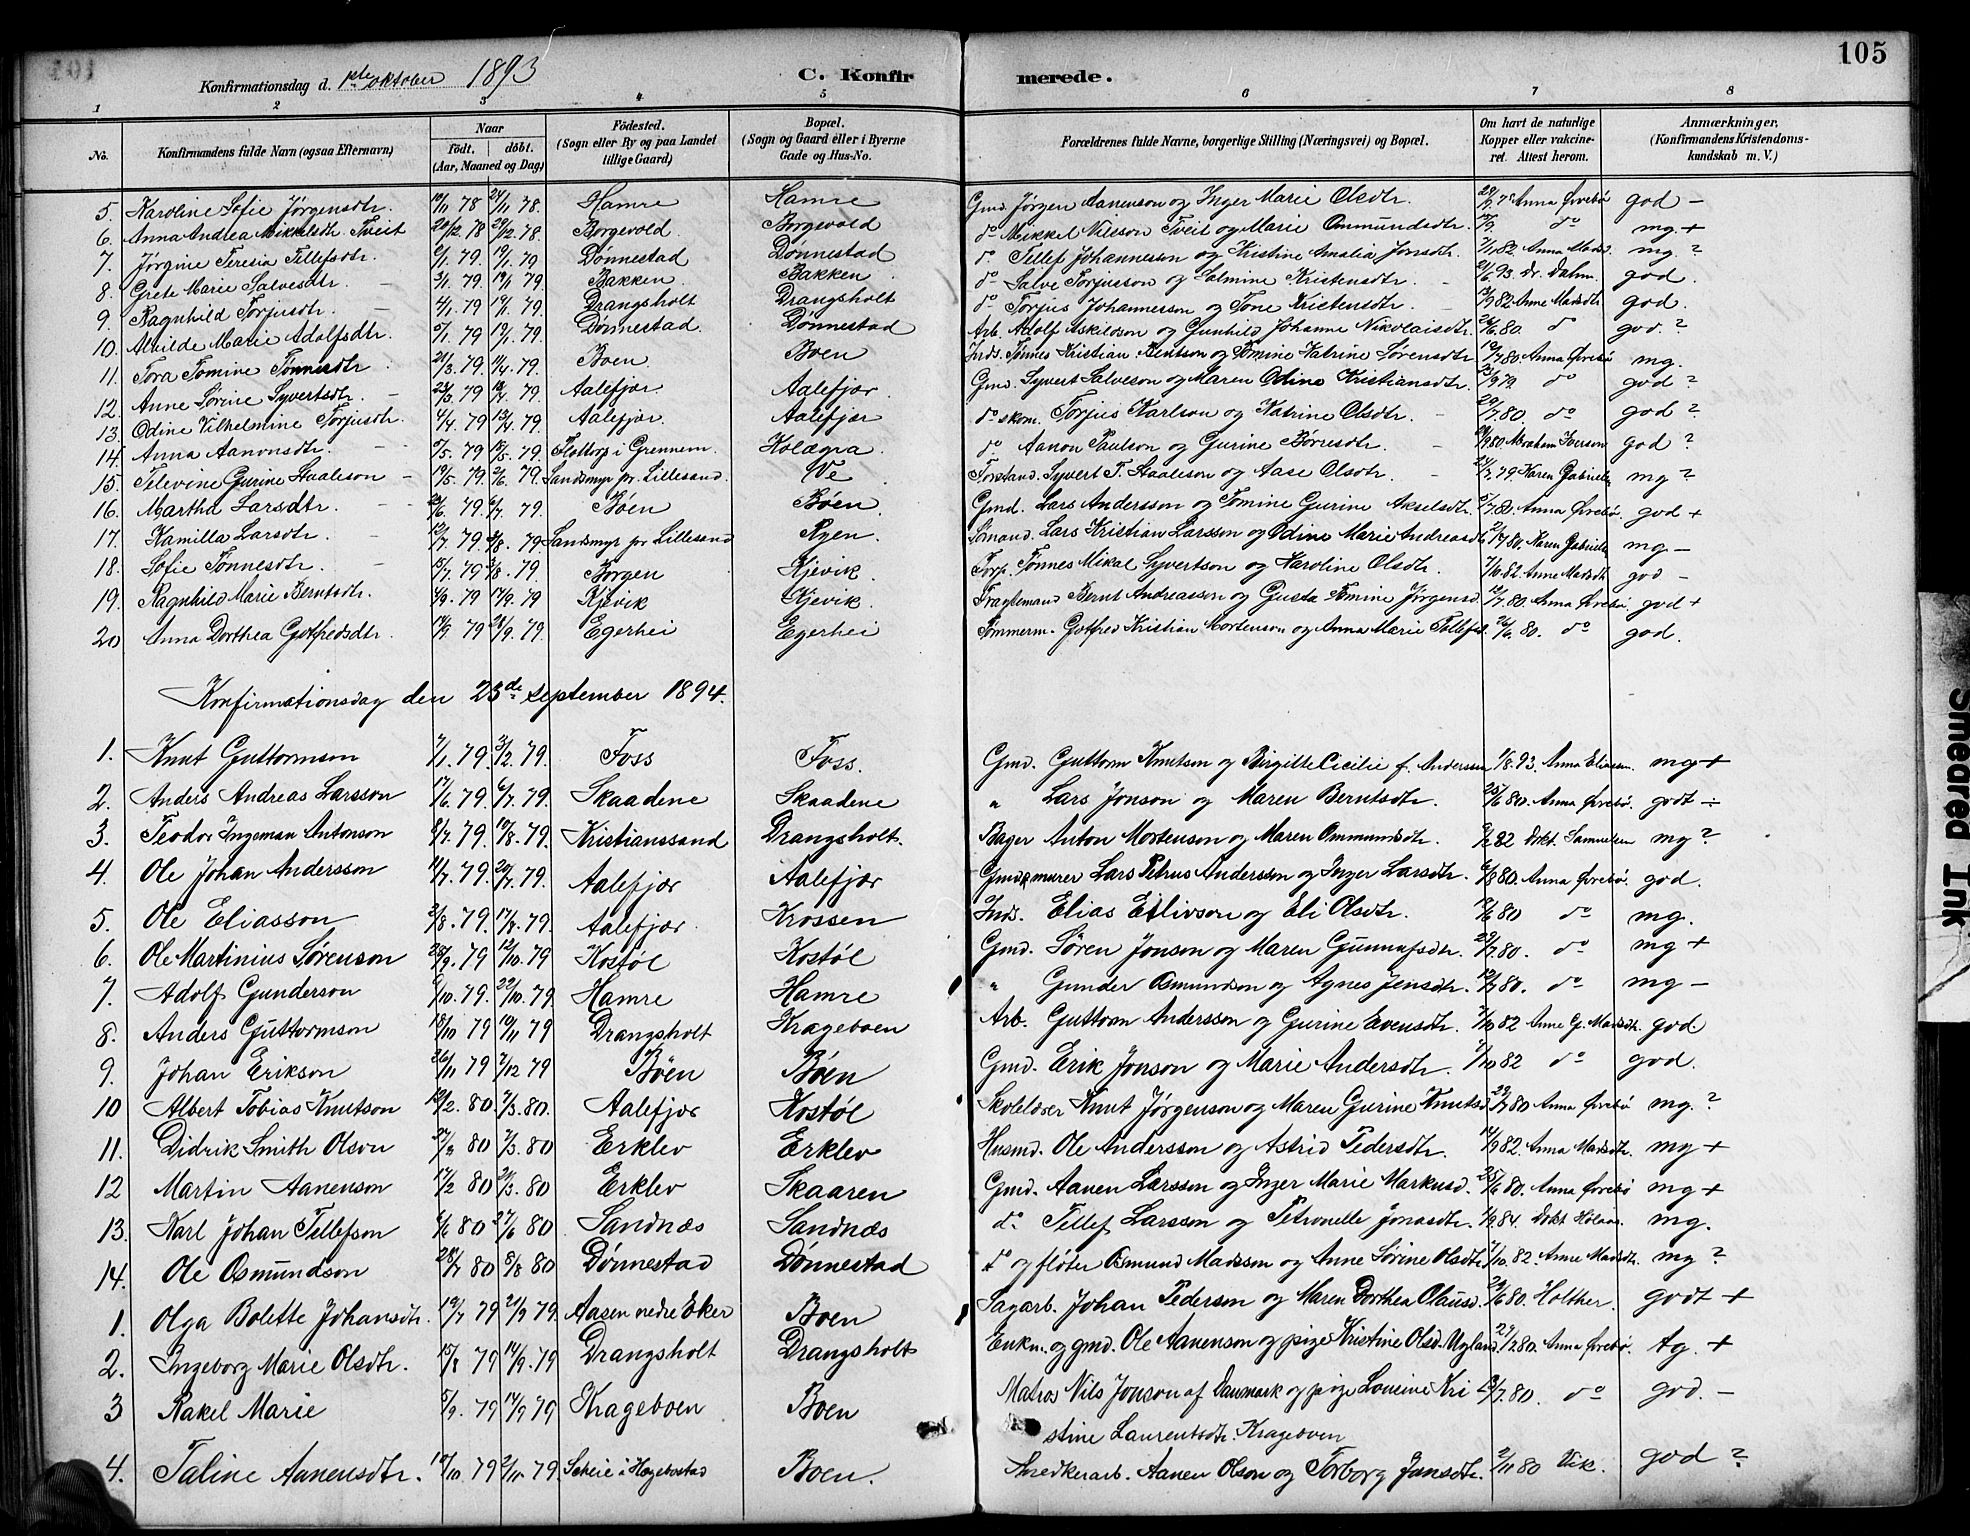 105
Konfirmationsdag d. 1ste oktober 1893 C. Konfirmerede.
1 2 3 4 5 6 7 8
No. Konfirmandens fulde Navn (ogsaa Efternavn) Naar Født. døbt. (Aar, Maaned og Dag) Fødested. (Sogn eller By og paa Landet tillige Gaard) Bopæl. (Sogn og Gaard eller i Byerne Gade og Hus-No. Forældrenes fulde Navne, borgerlige Stilling (Næringsvei) og Bopæl. Om havt de naturlige Kopper eller vakcineret. Attest herom. Anmærkninger. (Konfirmandens Kristendomskundskab m. V.)
5. Karoline Sofie Jørgensdtr. 19/11 78 24/11 78. Hamre Hamre Gmd. Jørgen Aanenson og Inger Marie Olsdtr. Anna Øvrebø god -
6. Anna Andrea Mikkelsdtr. Tveit 78 78. Borgevold Borgevold do Mikkel Nilsson Tveit og Marie Ommundsdtr. do mg. +
7. Jørgine Teresia Tellefsdtr. 79 79 Dønnestad Dønnestad do Tellef Johannesen og Kristine Amalia Jonsdtr. 82. Anna Madsd. mg. ?
8. Grete Marie Salvesdtr. 3/1 79 19/1 79 Bakken Bakken do Salve Torjusson og Salmine Kristensdtr. 93. Dr. Dahm god.
9. Ragnhild Torjusdtr. 4/1 79 19/1 79 Drangsholt Drangsholt do Torjus Johannesson og Tone Kristensdtr. 82 Anne Madsdtr god.
10. Alvilde Marie Adolfsdtr. 79 19/1 79. Dønnestad. Dønnestad Arb. Adolf Askildson og Gunhild Johanne Nikolaisdtr. 80. do god. ?
11. Tora Tomine Tønnesdtr 79. 79. Boen Boen Inds. Tønnes Kristian Bentson og Tomine Katrine Sørensdtr. 80. Anna Øvrebø mg.
12. Anne Sørine Syvertsdtr. 79 79. Aalefjær Aalefjær Gmd. Syvert Salveson og Maren Odine Kristiansdtr. 79 do god ?
13. Odine Vilhelmine Torjusdtr. 4/4 79 13/4 79. Aalefjær. Aalefjær do skom. Torjus Karlson og Katrine Olsdtr. 80. do god ?
14. Anna Aanonsdtr. 79 79. Flottorp i Grennem. Kolægra do Aanon Paulson og Gurine Børresdtr. 80 Abraham Iverson god ?
15. Televine Gurine Staaleson 19/5 79. 2/6 79. Sandsmyr pr. Lillesand. Ve Forstand. Syvert T. Staaleson og Aase Olsdtr. 79. Karen Gabrielsen mg ?
16. Martha Larsdtr. 79. 79. Bøen Bøen. Gmd. Lars Andersson og Tomine Gurine Akselsdtr. 80. Anna Øvrebø. god +
17. Kamilla Larsdtr. 79. 79 Sandsmyr pr Lillesand Ryen. Sømand. Lars Kristian Larsson og Odine Marie Andreasd. 80. Karen Gabrielsen mg -
18. Sofie Tønnesdtr. 79. 79. Borgen Kjevik Torp. Tønnes Mikal Syvertson og Karoline Olsdtr. 7/10 82. Anne Madsdtr god -
19. Ragnhild Marie Berntsdtr. 79 17/9. 79 Kjevik Kjevik. Fragtemand Bernt Andreasson og Gusta Tomine Jørgensd. 80. Anna Øvrebø. god +
20 Anna Dorthea Gotfredsdtr. 79 79. Egerhei Egerhei Tømmerm. Gotfred Kristian Mortenson og Anna Marie Tellefsd. 80. do god.
Konfirmationsdag den 23de september 1894.
1. Knut Guttormson 7/1. 79. 3/2. 79. Foss Foss. Gmd. Guttorm Knutson og Birgitte Cicilie f. Andersen 1/8. 93. Anna Eliasen. mg +
2. Anders Andreas Larsson 17/6. 79. 6/7. 79. Skaadene Skaadene " Lars Jonson og Maren Berntsdtr. 25/6 80. Anna Øvrebø. godt ÷
3. Teodor Ingeman Antonson 8/7. 79. 10/8. 79. Kristianssand Drangsholt. Bager Anton Mortenson og Maren Ommundsdtr. 82 Dokt. Samuelsen mg ?
4. Ole Johan Andersson 79. 20/7. 79. Aalefjær Aalefjær Gmd & murer Lars Petrus Andersson og Inger Larsdtr. 80. Anna Øvrebø. god.
5. Ole Eliasson 2/8. 79. 17/8. 79. Aalefjær. Krossen Inds. Elias Eilivson og Eli Olsdtr. 80 do mg.
6. Ole Martinius Sørenson 79 12/10. 79 Kostøl Kostøl Gmd. Søren Jonson og Maren Gunnufsdtr. 29/7. 80. do mg +
7. Adolf Gunderson 79. 22/10. 79 Hamre Hamre " Gunder Osmundson og Agnes Jensdtr. 80. do mg -
8. Anders Guttormson 18/10 79 79 Drangsholt Krageboen Arb. Guttorm Andersson og Gurine Evensdtr. 7/10 82 Anne G. Madsdtr. god
9. Johan Erikson 26/11 79 7/12 79 Bøen Bøen Gmd. Erik Jonson og Marie Andersdtr. 7/10 82 do god.
10 Albert Tobias Knutson 12/2. 80. 7/3. 80. Aalefjær Kostøl Skolelærer Knut Jørgenson og Maren Gurine Knutsd. 29/7 80 Anna Øvrebø mg. ?
11. Didrik Smith Olson 80 7/3. 80 Erklev Erklev Husmd. Ole Andersson og Astrid Pedersdtr. 14/9 82. Anna Madsdtr. mg +
12 Martin Aanenson 17/2 80 21/3. 80 Erklev Skaaren Gmd. Aanen Larsson og Inger Marie Markusd. 25/6 80. Anna Øvrebø mg +
13. Karl Johan Tellefson 6/6 80 27/6 80 Sandnæs Sandnæs do Tellef Larsson og Petronelle Jonasdtr. 84. Dokt mg.
14. Ole Osmundson 28/7 80 8/8 80 Dønnestad Dønnestad do og fløter Osmund Madsson og Anne Sørine Olsdtr. 7/10. 82. Anne Madsdtr. mg ?
1. Olga Bolette Johansdtr. 19/7 79 79. Aasen nedre Eker Boen Sagarb. Johan Pederson og Maren Dorthea Olausd. 80. Holther. godt +
2. Ingeborg Marie Olsdtr. 15/8 79 14/9. 79 Drangsholt Drangsholt Enkm. og gmd. Ole Aanenson og pige Kristine Olsd. Ugland. 80. Anna Øvrebø. tg. +
3 Rakel Marie 5/9. 79 14/9 79 Krageboen Boen Matros Nils Jonson af Danmark og pige Lovine Kri 80. do god. -
stine Laurentsdtr. Krageboen
4. Taline Aanensdtr. 79 2/11. 79. Skeie i Hægebostad Boen. Snedkerarb. Aanen Olson og Torborg Jansdtr. 2/11 80 Vik. god ?
Smeared Ink